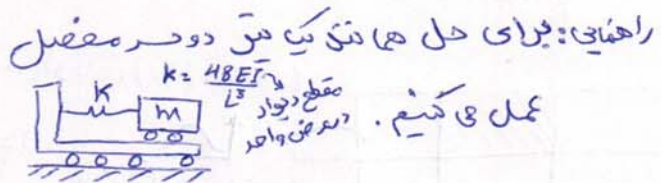 راهنمایی: برای حل همانند یک تیر دوسر مفصل
عمل می کنیم.
k = 48EI/L³
مقطع دیوار
در عرض واحد
K
m